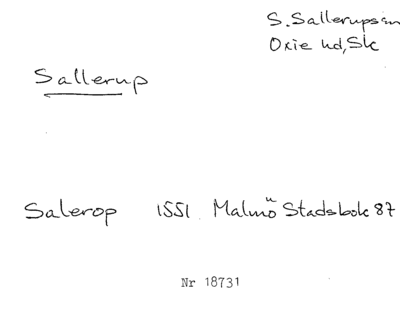 S. Sallerups sn
Oxie hd, Sk
Sallerup
Salerop 1551 Malmö Stadsbok 87
Nr 18731